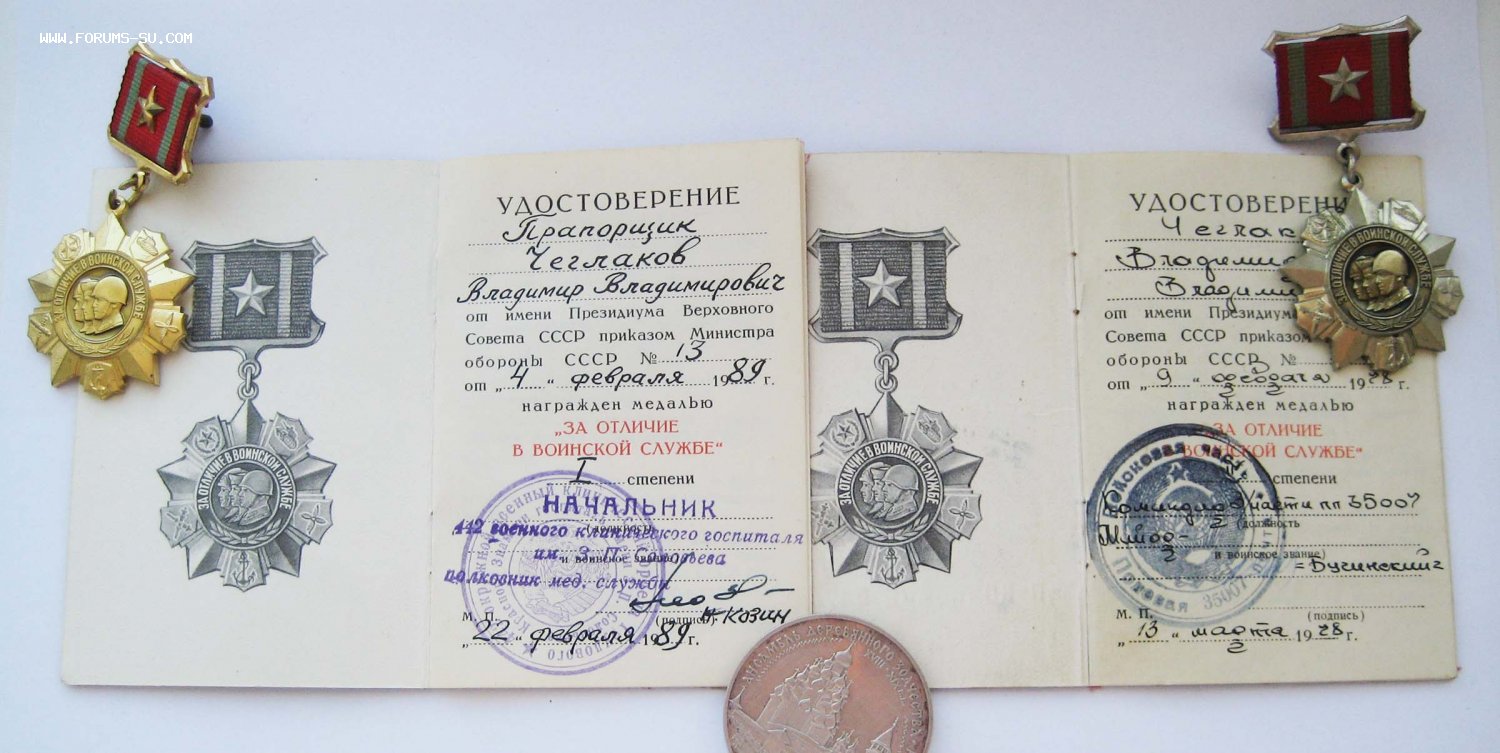 WWW.FORUMS-SU.COM
ЗА ОТЛИЧИЕ В ВОИНСКОЙ СЛУЖБЕ
ЗА ОТЛИЧИЕ В ВОИНСКОЙ СЛУЖБЕ
УДОСТОВЕРЕНИЕ
Прапорщик
Чеглаков
Владимир Владимирович
от имени Президиума Верховного
Совета СССР приказом Министра
обороны СССР № 13
от „4“ февраля 1989 г.
награжден медалью
„ЗА ОТЛИЧИЕ
В ВОИНСКОЙ СЛУЖБЕ“
I степени
НАЧАЛЬНИК
(должность
442 военного клинического госпиталя
им. З.П. Соловьева
и воинское звание)
полковник мед. службы
А КОЗИН
М. П. (подпись)
„22“ февраля 1989 г.
ЗА ОТЛИЧИЕ В ВОИНСКОЙ СЛУЖБЕ
УДОСТОВЕРЕНИ
Чеглак
Владими
Владими
от имени Президиума
Совета СССР приказом
обороны СССР №
от „9“ февраля 19 г.
награжден медалью
„ЗА ОТЛИЧИЕ
В ВОИНСКОЙ СЛУЖБЕ“
степени
Командир части пп 35007
(должность
Майор
и воинское звание)
Бугинский
М. П. (подпись)
„13“ марта 19 г.
Войсковая часть
Полевая 35007
ЗА ОТЛИЧИЕ В ВОИНСКОЙ СЛУЖБЕ
АНСАМБЛЬ ДЕРЕВЯННОГО ЗОДЧЕСТВА